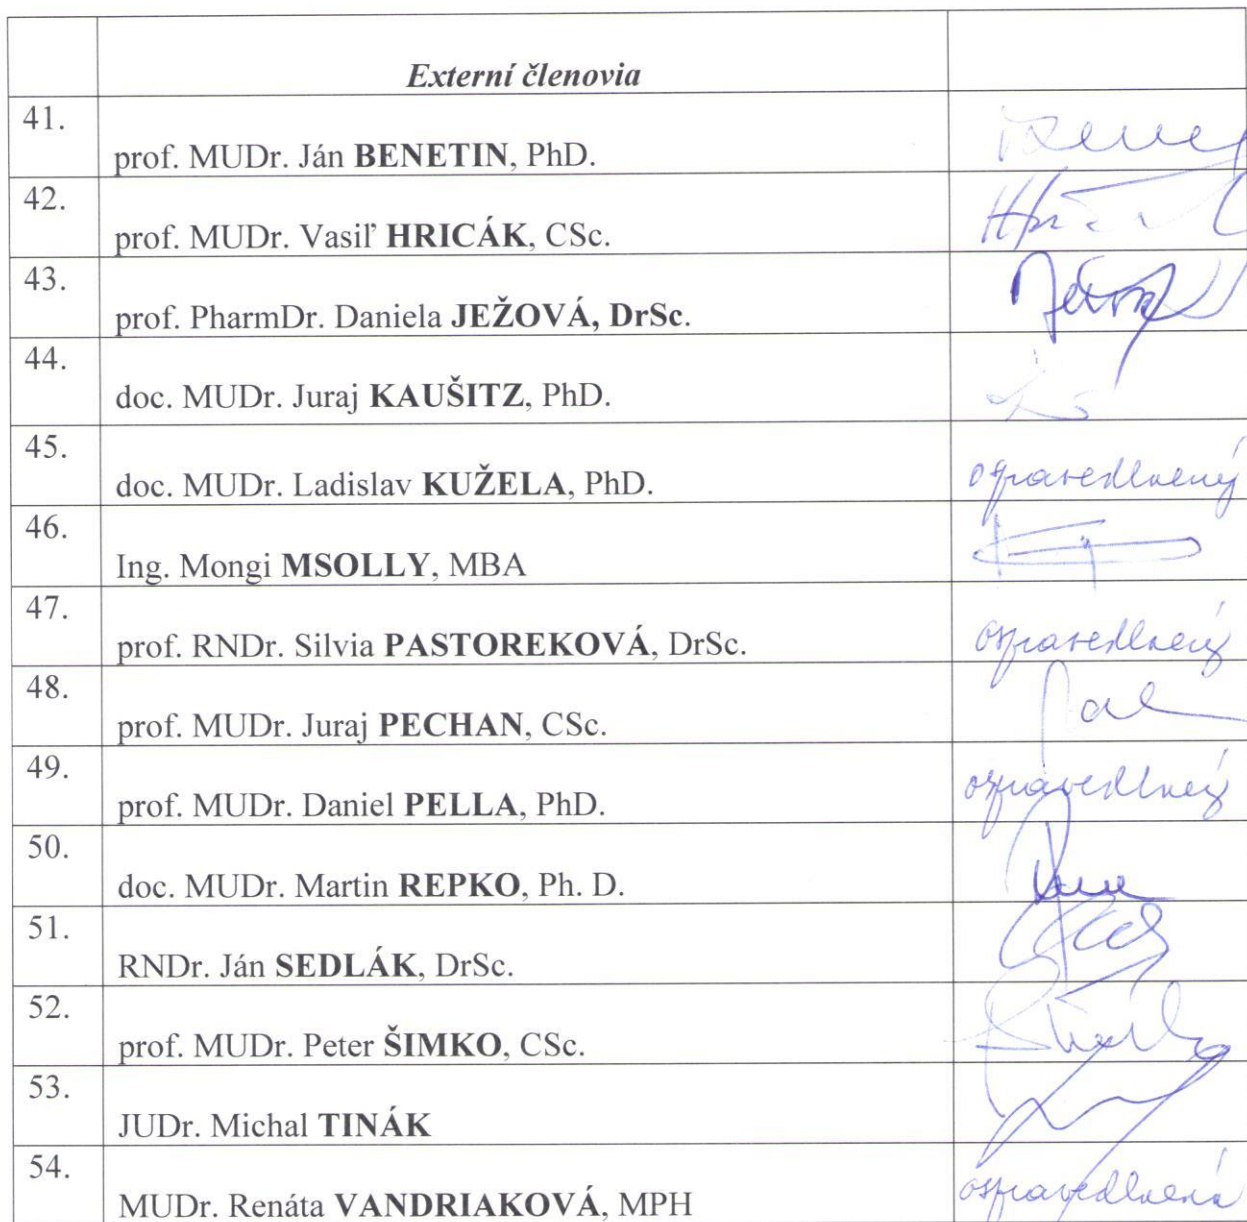 Externí členovia
41.
prof. MUDr. Ján BENETIN, PhD.
42.
prof. MUDr. Vasiľ HRICÁK, CSc.
43.
prof. PharmDr. Daniela JEŽOVÁ, DrSc.
44.
doc. MUDr. Juraj KAUŠITZ, PhD.
45.
doc. MUDr. Ladislav KUŽELA, PhD. ospravedlnený
46.
Ing. Mongi MSOLLY, MBA
47.
prof. RNDr. Silvia PASTOREKOVÁ, DrSc. ospravedlnený
48.
prof. MUDr. Juraj PECHAN, CSc.
49.
prof. MUDr. Daniel PELLA, PhD. ospravedlnený
50.
doc. MUDr. Martin REPKO, Ph. D.
51.
RNDr. Ján SEDLÁK, DrSc.
52.
prof. MUDr. Peter ŠIMKO, CSc.
53.
JUDr. Michal TINÁK
54.
MUDr. Renáta VANDRIAKOVÁ, MPH ospravedlnená